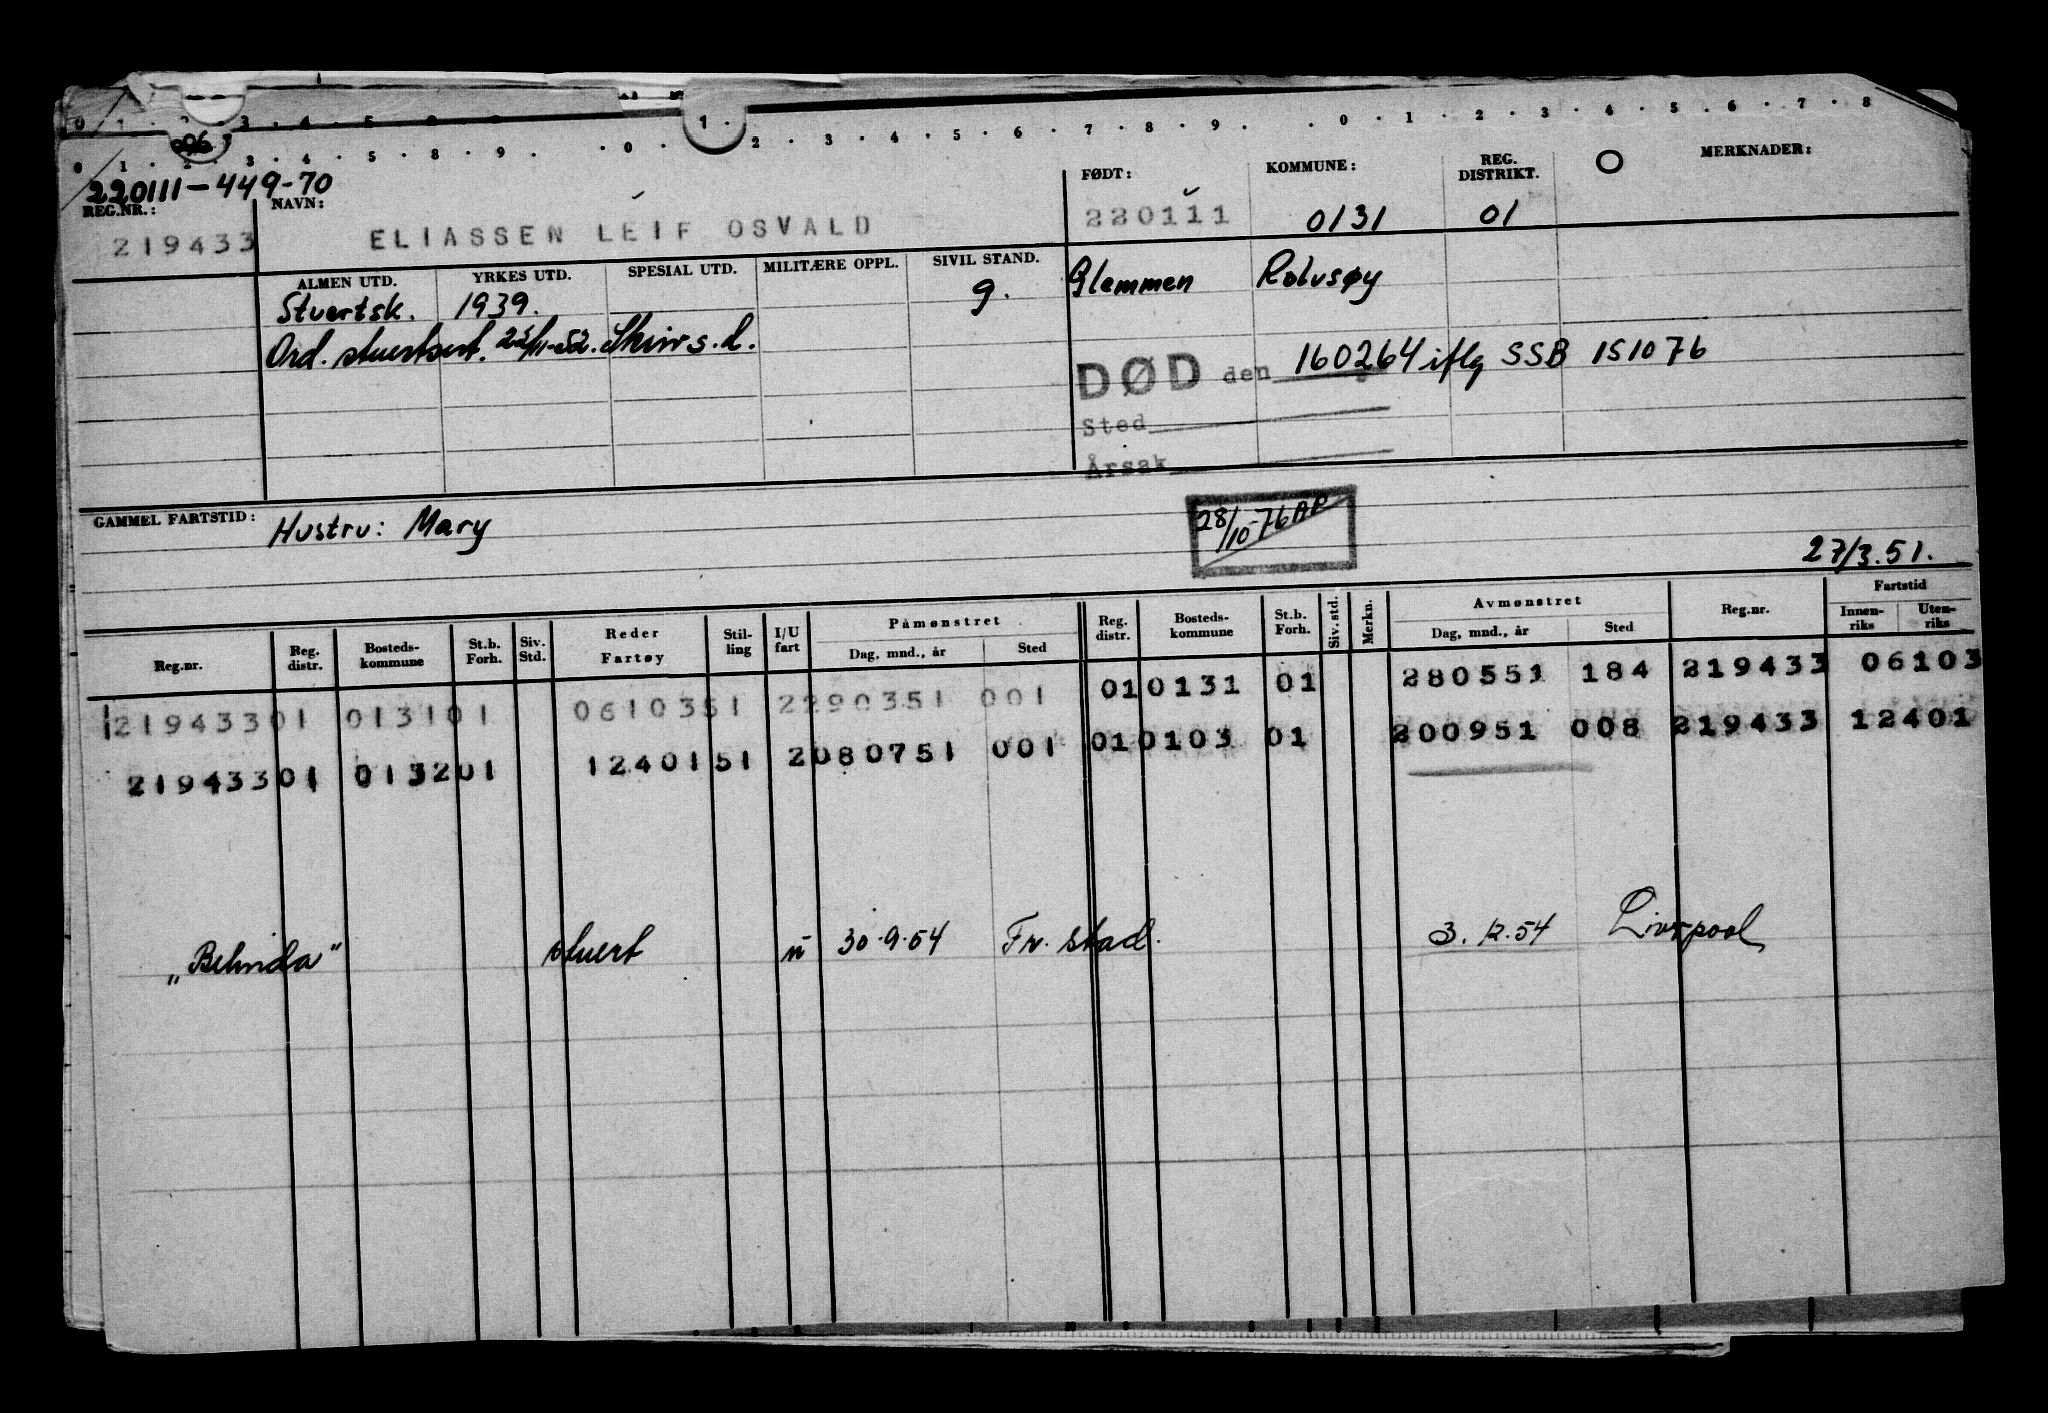 0 1 2 3 4 5 8 9 1 2 3 4 5 6 7 8 9 0 1 2 3 4 5 6 7 8
0 1 2 3 4 5 8 9 0
220111-449-70
REG.NR.: NAVN: FØDT: KOMMUNE: REG. DISTRIKT. MERKNADER:
219433 ELIASSEN LEIF OSVALD 220111 0131 01
ALMEN UTD. YRKES UTD. SPESIAL UTD. MILITÆRE OPPL. SIVIL STAND.
Stuertsk. 1939. g. Glemmen Rolvsøy
Ord. stuertsert.
DØD den 160264 iflg SSB 151076
Sted
Årsak
GAMMEL FARTSTID: Hustru: Mary
28/10-76 AP
27/3.51.
Reg.nr. Reg. distr. Bosteds-kommune St.b. Forh. Siv. Std. Reder Fartøy Stil-ling I/U fart Påmønstret Dag, mnd., år Sted Reg. distr. Bosteds-kommune St.b. Forh. Siv. std. Merkn. Avmønstret Dag, mnd., år Sted Reg.nr. Fartstid Innen-riks Uten-riks
219433 01 0131 01 06103 51 2 290351 001 01 0131 01 280551 184 219433 06103
219433 01 0132 01 12401 51 2 080751 001 01 0103 01 200951 008 219433 12401
„Belinda" stuert u 30.9.54 Fr. stad. 3.12.54 Liverpool